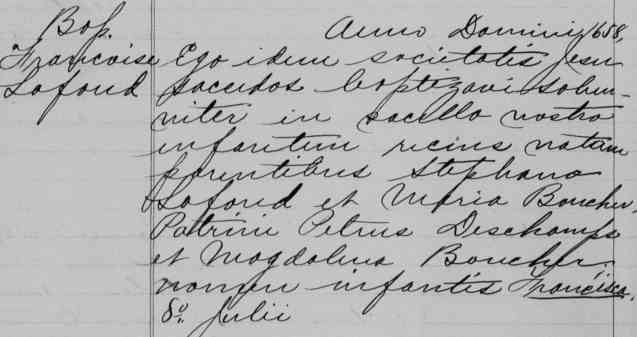 Bap.
Francoise
Lafond
Anno Domini 1658,
Ego idem societatis Jesu
sacerdos baptezavi solem-
niter in sacello nostro
infantem recins natam
parentibus Stephano
Lafond et Maria Boucher.
Patrini Petrus Deschamps
et Magdalena Boucher.
nomen infantis Francisca.
8º. Julii